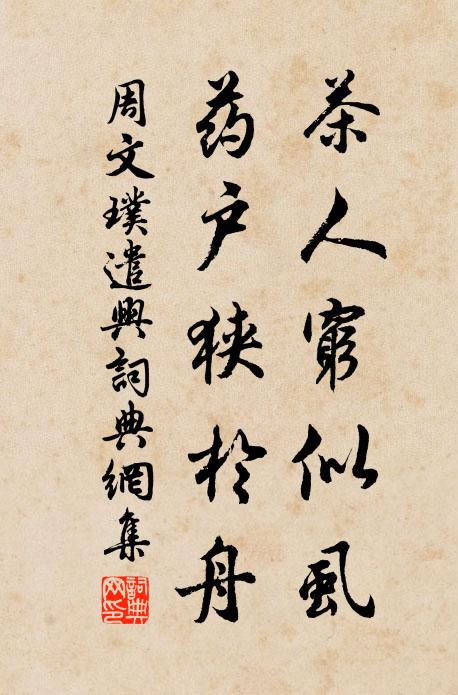 茶人窮似虱
药户狹於舟
周文璞遣興詞典網集
詞典网印